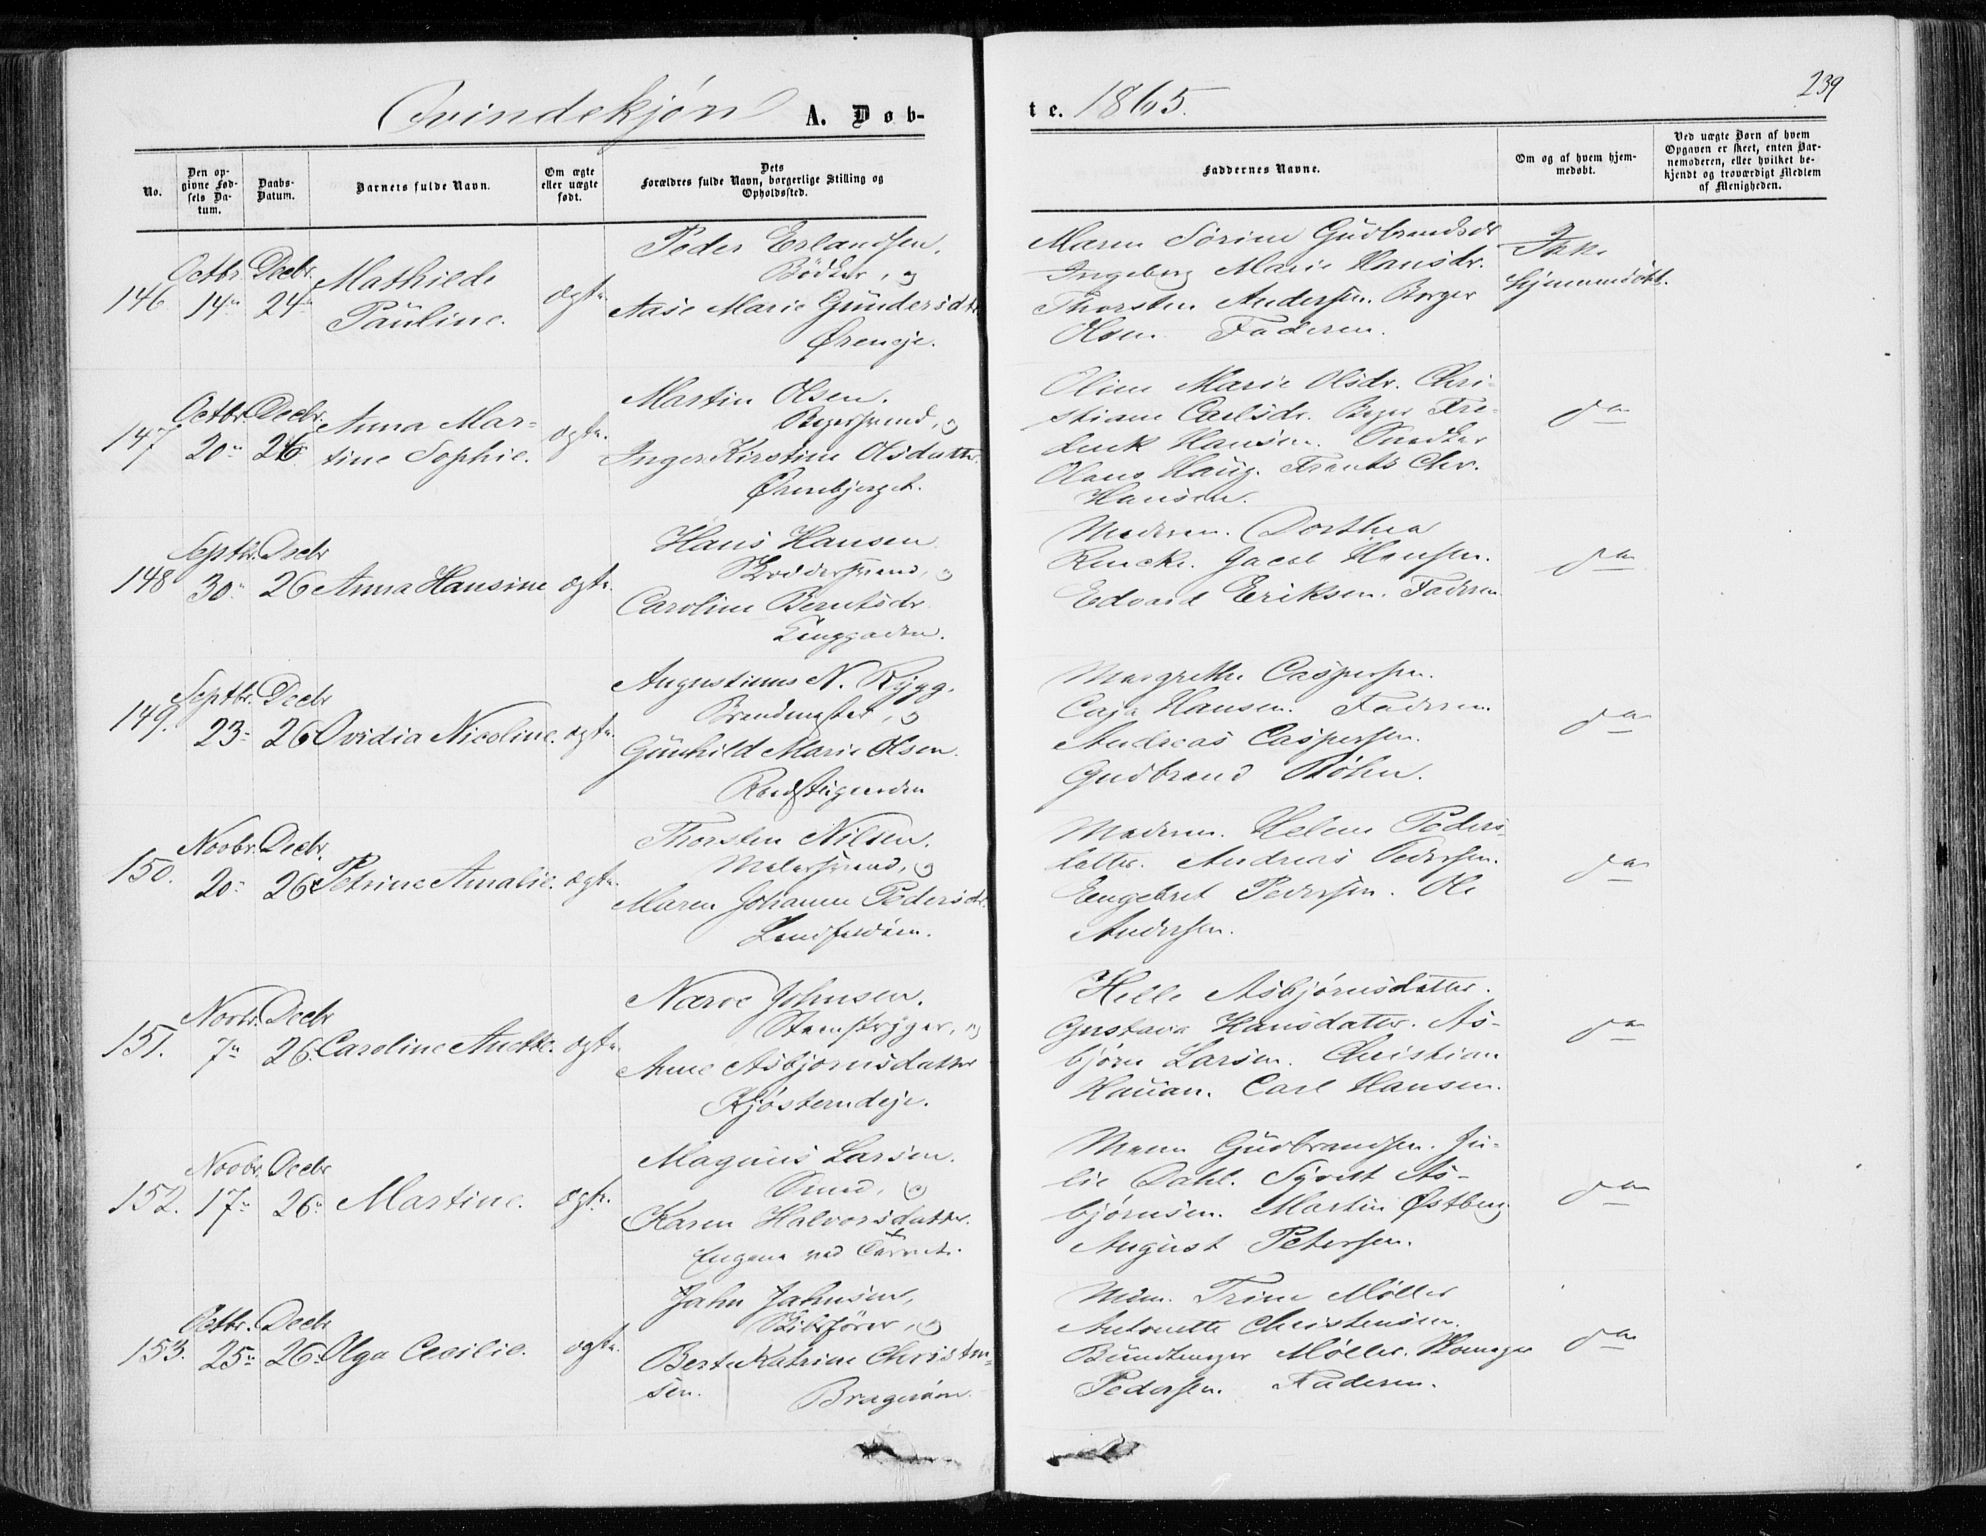 Qvindekjøn A. Døb-
te. 1865.
239
No.
Den op-
givne Fød-
sels Da-
tum.
Daabs-
Datum.
Barnets fulde Navn.
Om ægte
eller uægte
født.
Dets
Forældres fulde Navn, borgerlige Stilling og
Opholdssted.
Faddernes Navne.
Om og af hvem hjem-
medøbt.
Ved uægte Børn af hvem
Opgaven er skeet, enten Bar-
nemoderen, eller hvilket be-
kjendt og troværdigt Medlem
af Menigheden.
146
Octbr. 14
Decbr. 24
Mathilde
Pauline.
ægte
Peder Erlandsen,
Bødker, og
Aase Marie Gundersdtr
Øreneje.
Maren Sørine Gudbrandsdr
Ingeborg Marie Hansdr.
Thorsten Andersen. Borger
Olsen. Faderen.
Ikke
hjemmedøbt.
147
Octbr. 20
Decbr. 26
Anna Mar-
tine Sophie.
ægte.
Martin Olsen.
Bøgersvend, og
Inger Kirstine Olsdatter.
Ørenbjerget.
Oline Marie Olsdr. Chri-
stiane Carlsdr. Fre-
derik Hansen. Snedker
Olaus Haug. Frants Chr.
Hansen.
do
148
Septbr. 30
Decbr 26
Anna Hansine
ægte.
Hans Hansen
og
Caroline Berntsdr.
Tanggaden.
Moderen. Dorthea
Rencke. Jacob Hansen.
Edvard Eriksen. Faderen
do
149.
Septbr. 23
Decbr 26
Ovidia Nicoline.
ægte.
Augustinus N. Rygg.
Brandmester, og
Gunhild Marie Olsen.
Margrethe Caspersen.
Caja Hansen. Faderen.
Andreas Caspersen.
Gudbrand Bøhn.
do
150.
Novbr. 20
Decbr. 26
Petrine Amalie.
ægte.
Thorsten Nilsen.
Malersvend, og
Maren Johanne Pedersdr.
Landfaldøen.
Moderen. Helene Peders-
datter. Andreas Pedersen.
Engebret Pedersen. Ole
Andersen.
do
151.
Novbr. 7
Decbr 26.
Caroline Anette.
ægte.
Narve Johnsen.
og
Anne Asbjørnsdatter
Kjøsterudeje.
Helle Asbjørnsdatter.
Gustava Hansdatter. As-
bjørn Larsen. Christian
Hauan. Carl Hansen.
do
152.
Novbr. 17
Decbr 26
Martine.
ægte.
Magnus Larsen.
Smed, og
Karen Halvorsdatter.
Engene ved Taarnet.
Maren Gudbrandsen. Ju-
lie Dahl. Syvert As-
bjørnsen. Martin Østberg
August Petersen.
do
153.
Octbr. 25
Decbr 26
Olga Cecilie.
ægte.
Jahn Jahnsen,
Skibsfører, og
Berte Katrine Christen-
sen.
Bragerøen.
Mdm. Trine Møller
Antonette Christensen.
Buntmager Møller.
Pedersen. Faderen.
do